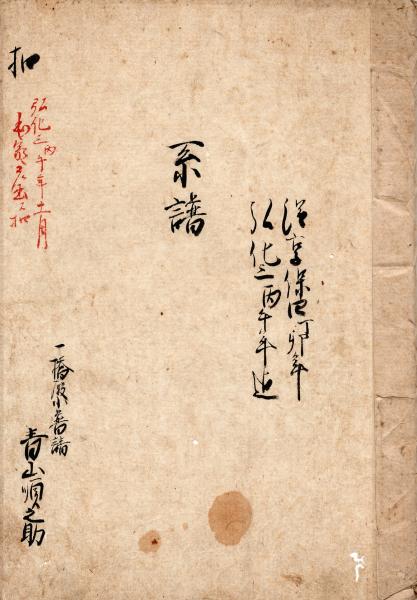 従享保四丁卯年
弘化三丙午年迄
系譜
扣
弘化三丙午年十一月
一橋殿小普請
青山順之助